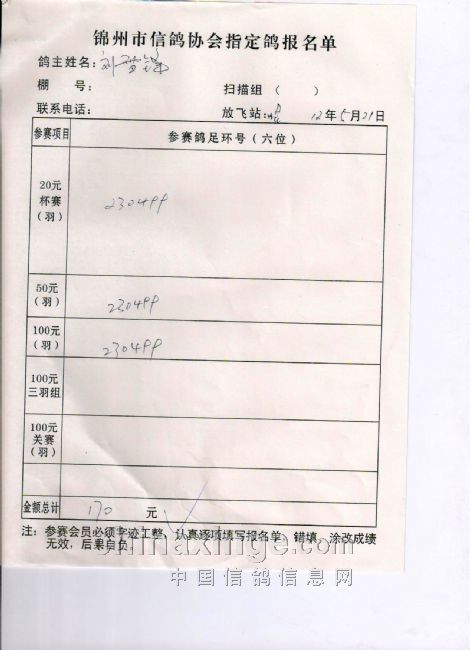 锦州市信鸽协会指定鸽报名单
鸽主姓名：刘
棚 号： 扫描组（ ）
联系电话： 放飞站： 12年5月21日
参赛项目 参赛鸽足环号（六位）
20元
杯赛
（羽）
230499
50元
（羽）
230499
100元
（羽）
230499
100元
三羽组
100元
关赛
（羽）
金额总计 170 元
注：参赛会员必须字迹工整，认真逐项填写报名单，错填，涂改成绩
无效，后果自负
chinaxinge.com
中国信鸽信息网